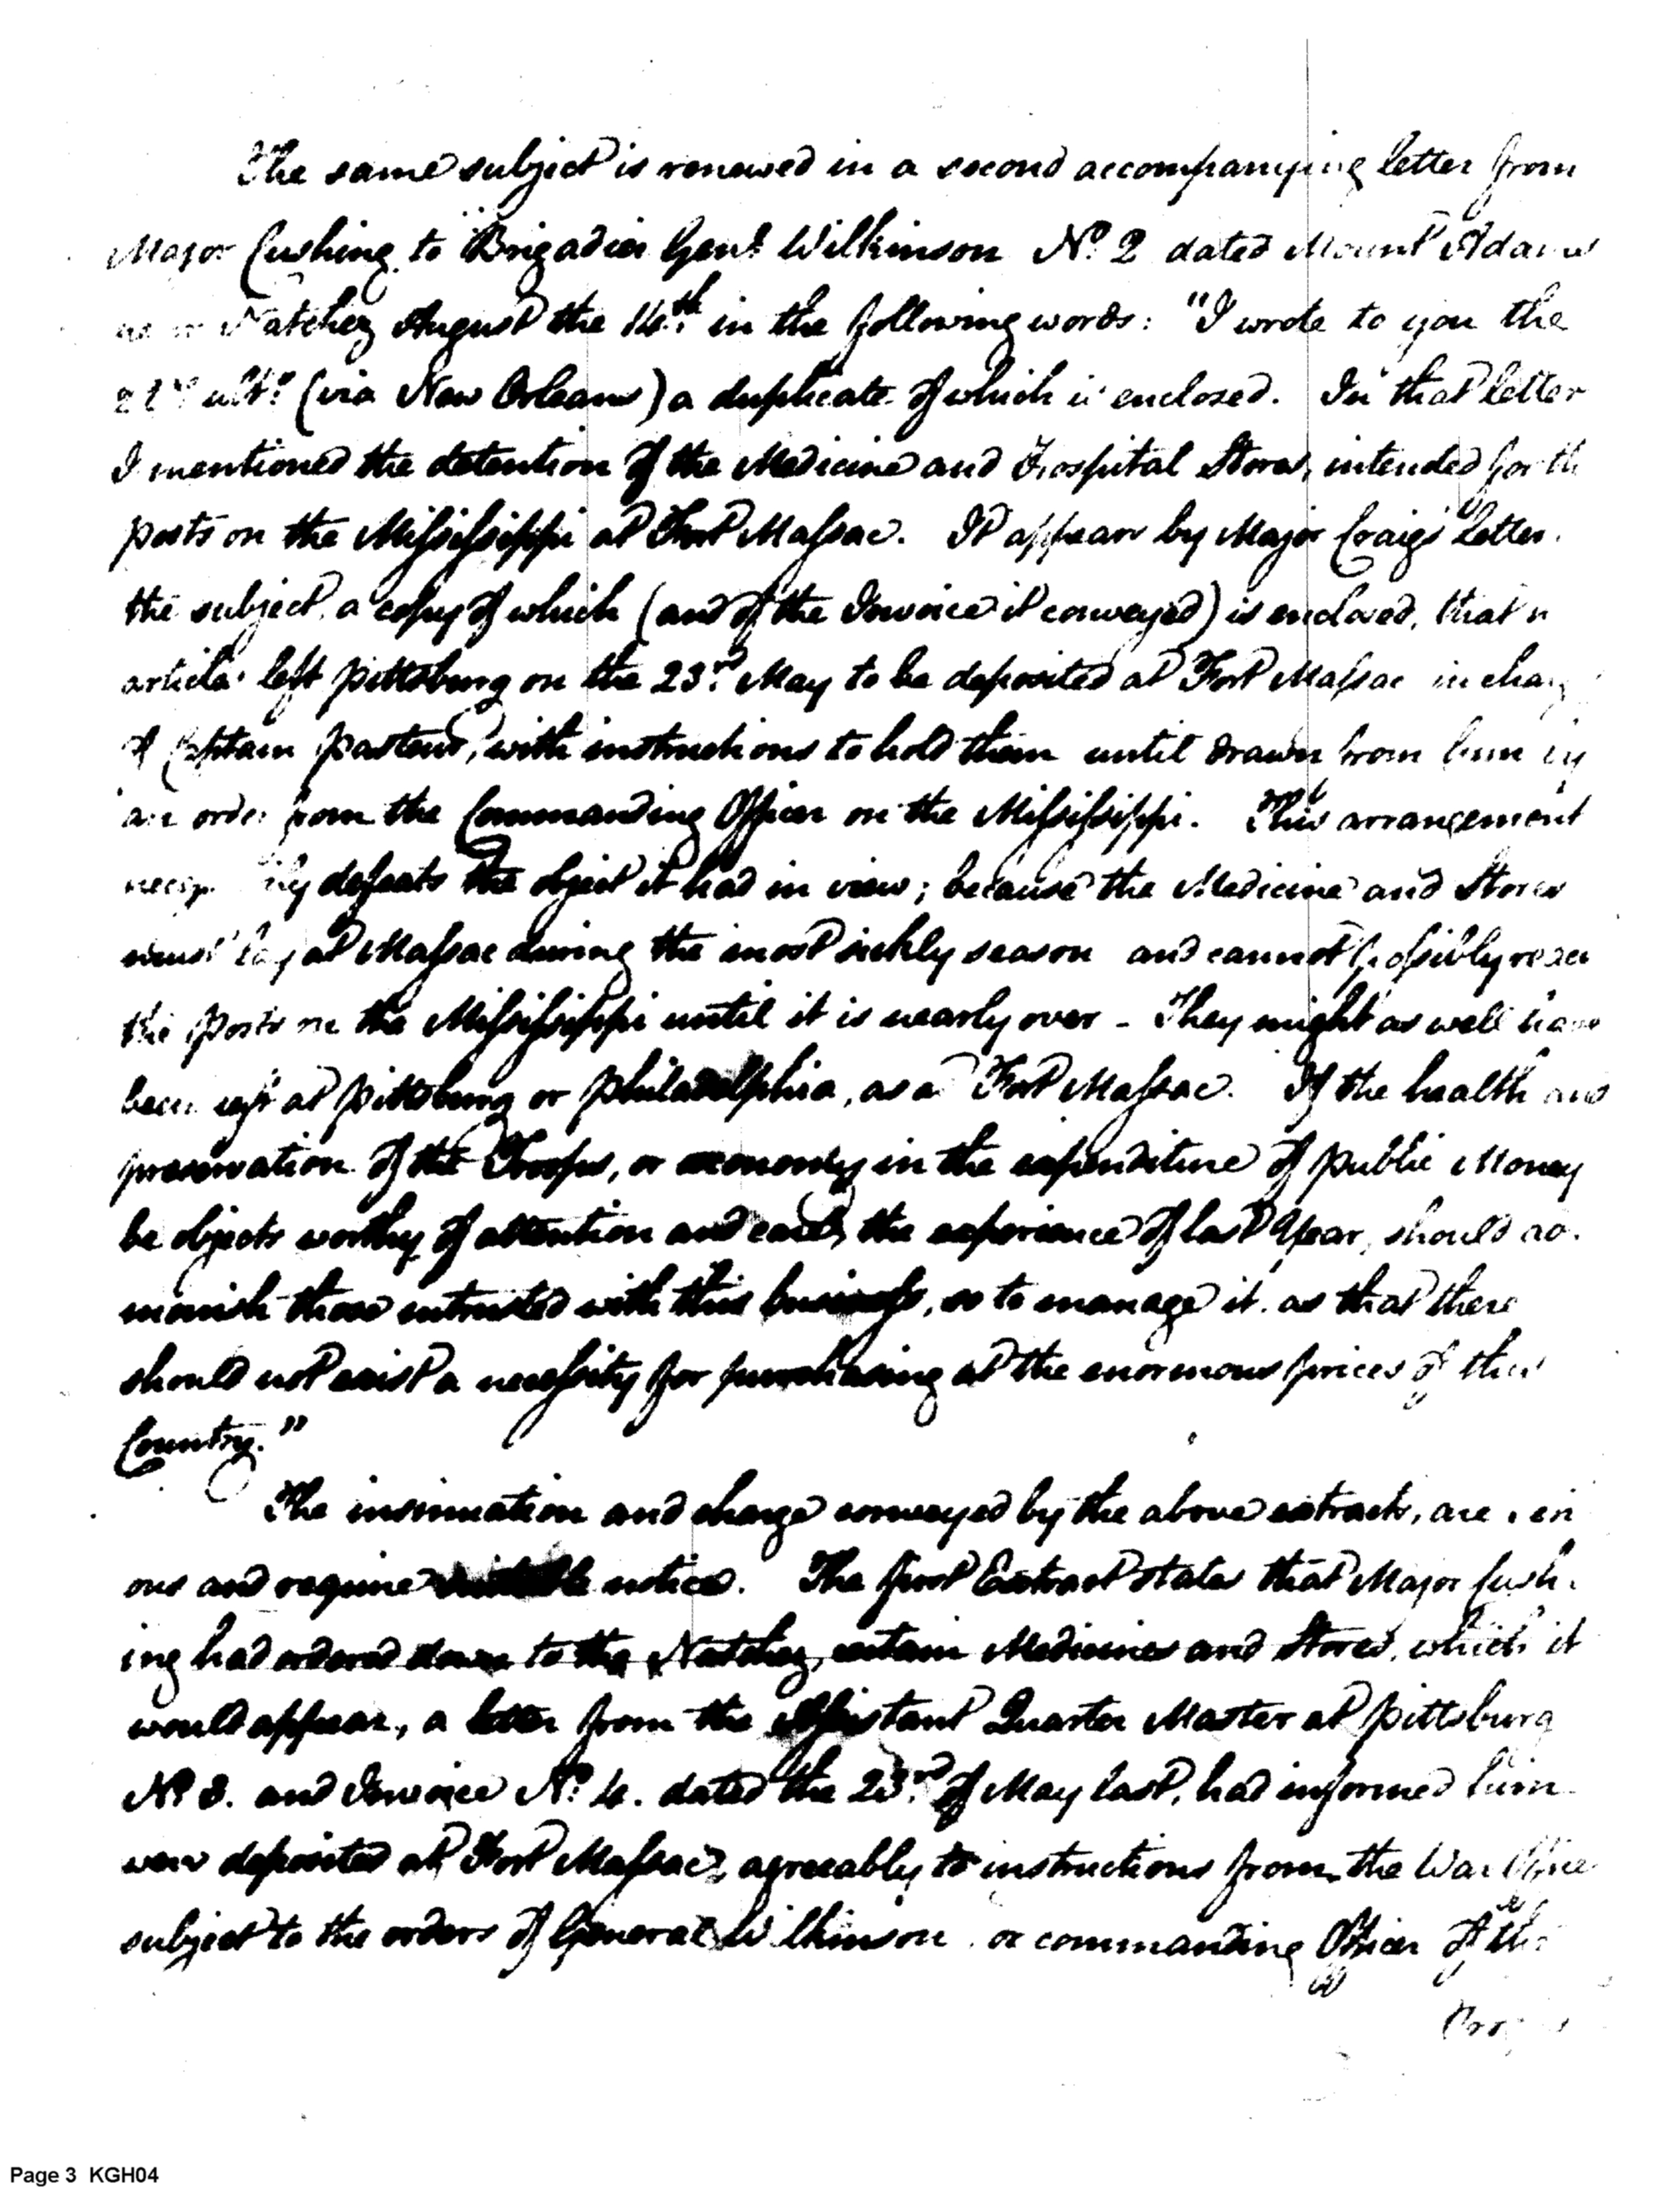 The same subject is renewed in a second accompanying letter from
Major Cushing to Brigadier Genl Wilkinson No. 2 dated Mount Adams
Natchez August the 14th in the following words: "I wrote to you the
ulto. (via New Orleans) a duplicate of which is enclosed. In that letter
I mentioned the detention of the Medicine and Hospital Stores, intended for th
posts on the Mississippi at Fort Massac. It appears by Major Craigs letter
the subject, a copy of which (and of the Invoice it conveyed) is enclosed, that
articles left pittsburg on the 23rd. May to be deposited at Fort Massac in charg
of Captain Pasteur, with instructions to hold them until drawn from him by
an order from the Commanding Officer on the Mississippi. This arrangement
defeats the object it had in view; because the Medicine and Stores
must lay at Massac during the most sickly season and cannot possibly reach
the posts on the Mississippi until it is nearly over - They might as well have
been left at pittsburg or philadelphia, as at Fort Massac. If the health and
preservation of the Troops, or oeconomy in the expenditure of public Money
be objects worthy of attention and care, the experience of last Year, should ad-
monish those intrusted with this business, so to manage it, as that there
should not exist a necessity for purchasing at the enormous prices of this
Country."
The insinuation and charge conveyed by the above extracts, are
ous and require notice. The first Extract states that Major Cush-
ing had ordered down to the Natchez, certain Medicines and Stores, which it
would appear, a letter from the Assistant Quarter Master at pittsburg
No. 3. and Invoice No. 4. dated the 23rd. of May last, had informed him
were deposited at Fort Massac, agreeably to instructions from the War Office
subject to the orders of General Wilkinson or commanding Officer of the
Page 3 KGH04